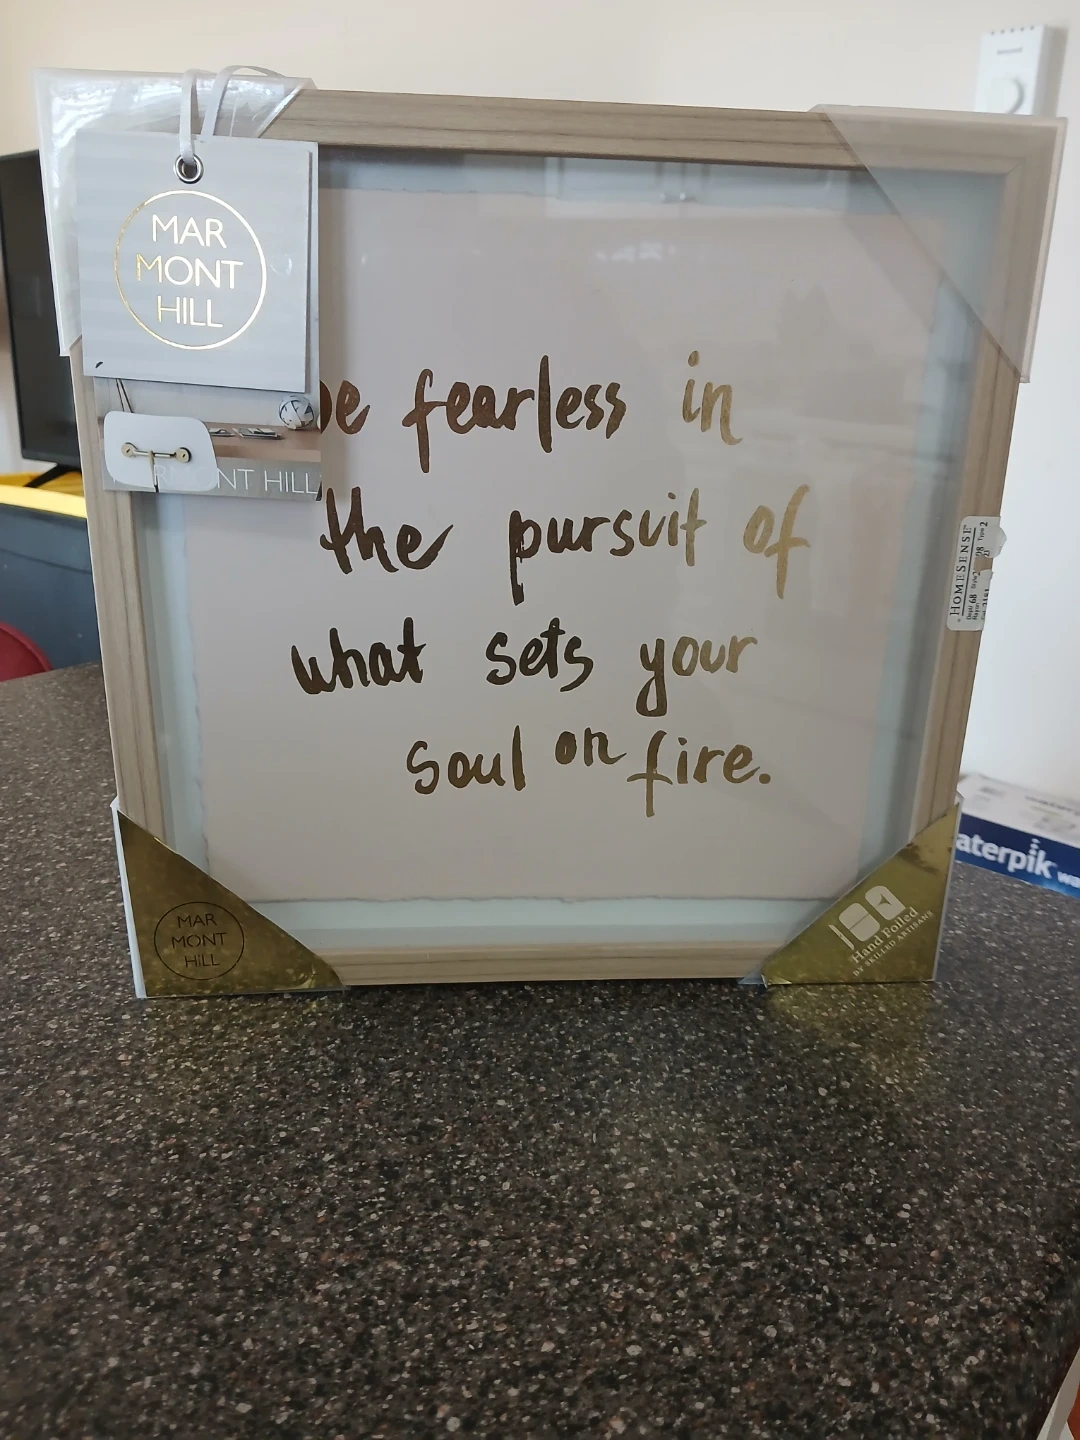 MAR
MONT
HILL
be fearless in
the pursuit of
what sets your
soul on fire.
NT HILL
HOMESENSE
MAR
MONT
HILL
Hand Foiled
BY SKILLED ARTISANS
aterpik